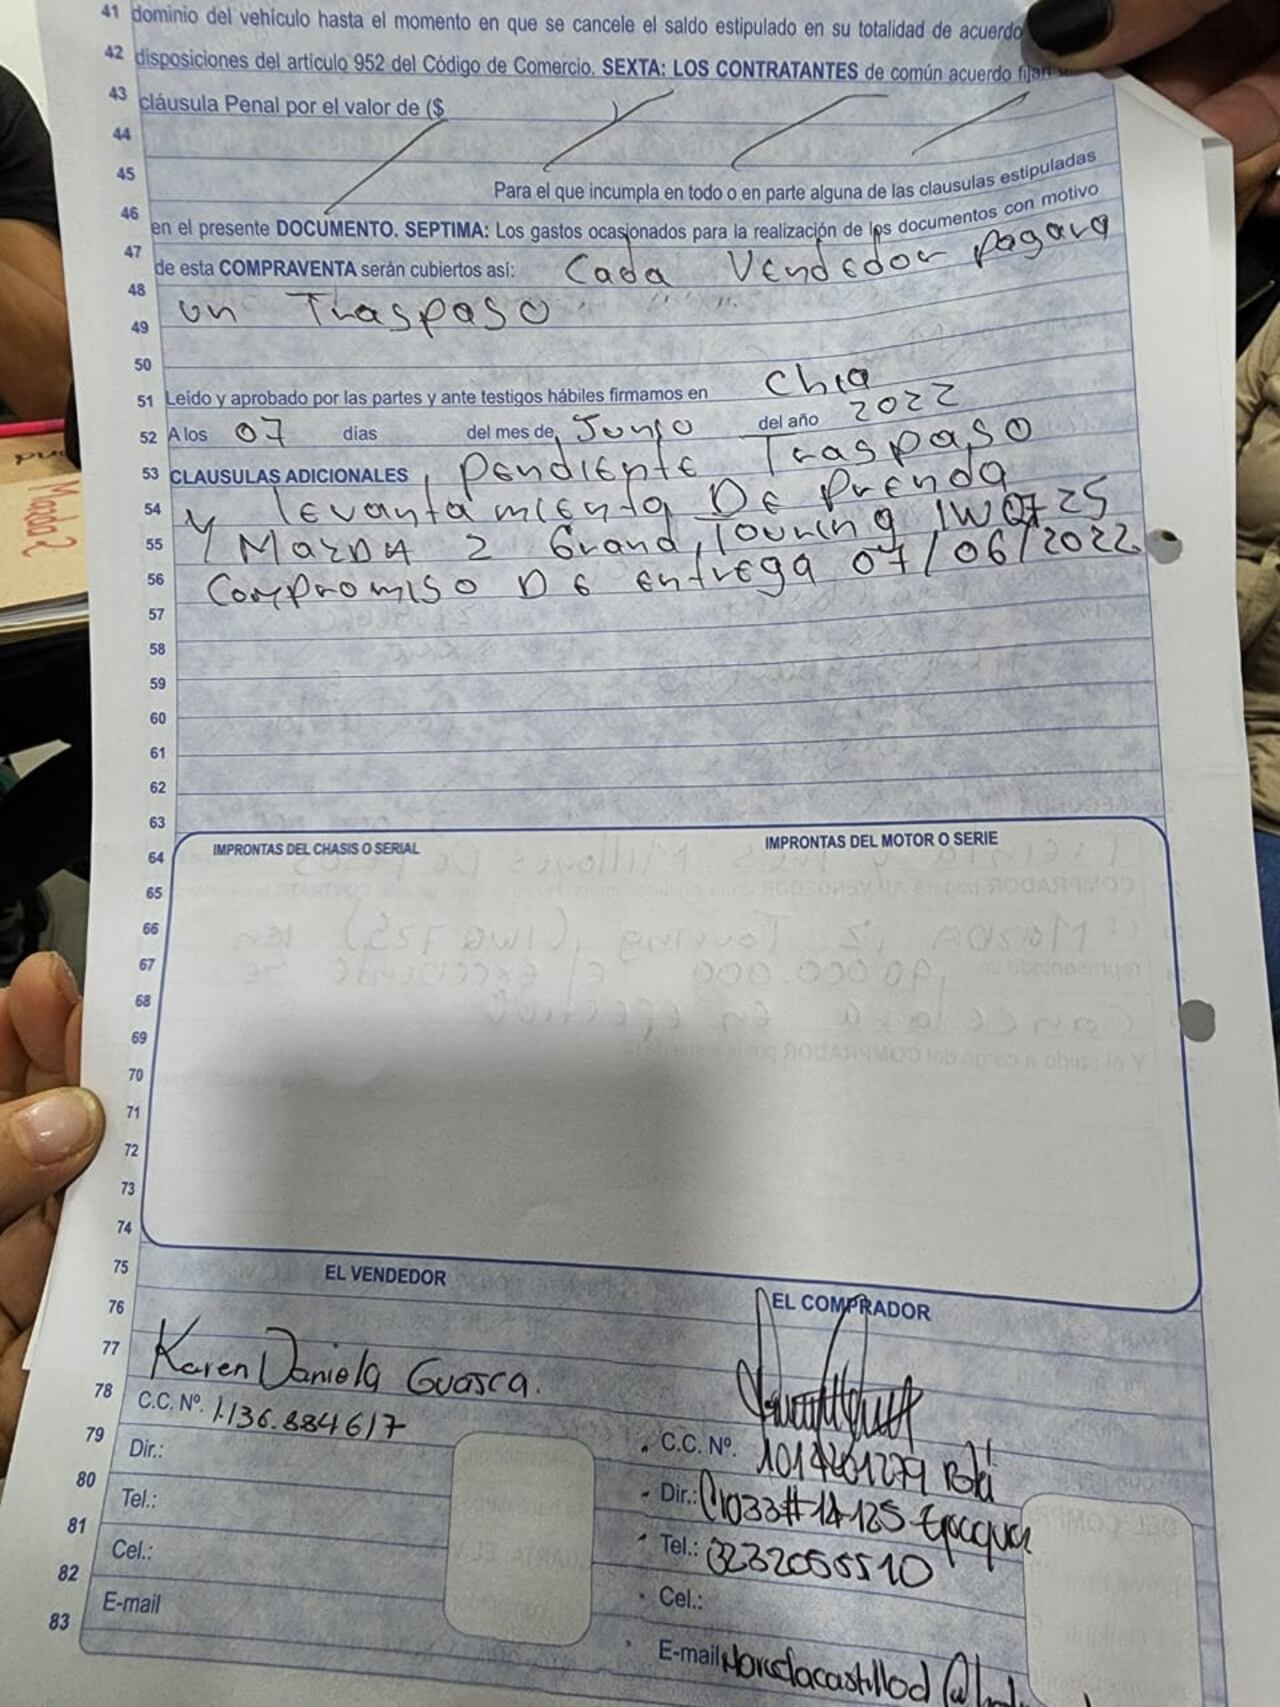 41 dominio del vehículo hasta el momento en que se cancele el saldo estipulado en su totalidad de acuerdo
42 disposiciones del articulo 952 del Código de Comercio. SEXTA: LOS CONTRATANTES de común acuerdo fijan
43 cláusula Penal por el valor de ($
44
45 Para el que incumpla en todo o en parte alguna de las clausulas estipuladas
46 en el presente DOCUMENTO. SEPTIMA: Los gastos ocasionados para la realización de los documentos con motivo
47 de esta COMPRAVENTA serán cubiertos así: Cada Vendedor pagara
48 un Traspaso
49
50
51 Leído y aprobado por las partes y ante testigos hábiles firmamos en Chia
52 A los 07 días del mes de Junio del año 2022
53 CLAUSULAS ADICIONALES, Pendiente Traspaso
54 y levantamiento De Prenda
55 Mazda 2 Grand Touring IWQ725
56 Compromiso De entrega 07/06/2022
57
58
59
60
61
62
63
64 IMPRONTAS DEL CHASIS O SERIAL IMPRONTAS DEL MOTOR O SERIE
65
66
67
68
69
70
71
72
73
74
75 EL VENDEDOR EL COMPRADOR
76
77 Karen Daniela Guasca.
78 C.C. Nº. 1.136.884617
C.C. Nº. 1014201279
79 Dir.:
Dir.: 1033#14-125
80 Tel.:
Tel.: 3232055510
81 Cel.:
Cel.:
82 E-mail
E-mail
83